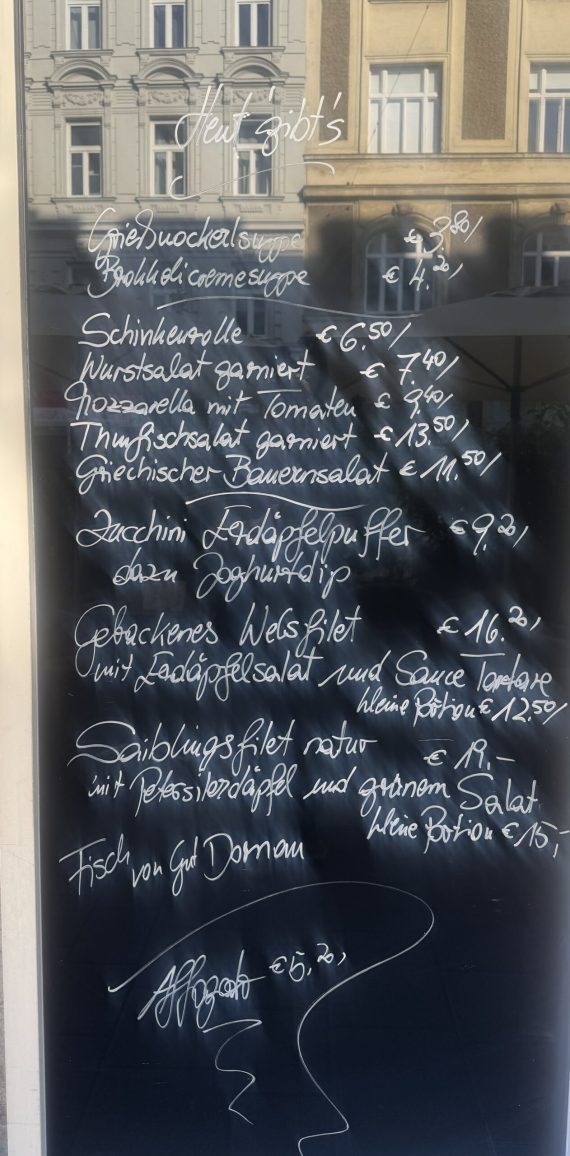 Heut' gibt's
Grießnockerlsuppe € 3.80/
Brokkolicremesuppe € 4.20/
Schinkenrolle € 6.50/
Wurstsalat garniert € 7.40/
Mozzarella mit Tomaten € 9.40/
Thunfischsalat garniert € 13.50/
Griechischer Bauernsalat € 11.50/
Zucchini Erdäpfelpuffer € 9.20/
dazu Joghurtdip
Gebackenes Welsfilet € 16.20/
mit Erdäpfelsalat und Sauce Tartare
kleine Portion € 12.50/
Saiblingsfilet natur € 19.–
mit Petersilerdäpfel und grünem Salat
kleine Portion € 15,-
Fisch von Gut Dornau
Affogato € 5.20/